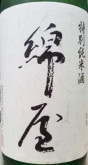 特別純米酒
綿屋